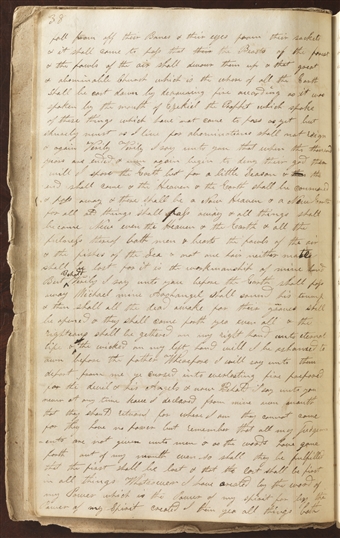 38
fall from off their Bones & their eyes from their sockets
& it shall come to pass that the Beasts of the forest
& the fowls of the air shall devour them up & that great
& abominable Church which is the whore of all the Earth
shall be cast down by devouring fire according as it was
spoken by the mouth of Ezekiel the Prophet which spoke
of these things which have not come to pass as yet but
shurely must as I live for abominations shall not reign
& again Verily Verily I say unto you that when the thousand
years are ended & men again begin to deny their god then
will I spare the Earth but for a little Season & the
end shall come & the Heaven & the Earth shall be consumed
& pass away & there shall be a new Heaven & a new Earth
for all old things shall pass away & all things shall
become New even the Heaven & the Earth & all the
fulness thereof both men & beasts the fowls of the air
& the fishes of the Sea & not one hair neither mote
shall be lost for it is the workmanship of mine hand
But Behold Verily I say unto you before the Earth shall pass
away Michael mine Archangel shall sound his trump
& then shall all the dead awake for their graves shall
be opened & they shall come forth yea even all & the
righteous shall be gethered on my right hand unto eternal
life & the wicked on my left hand will I be ashamed to
own before the father Wherefore I will say unto them
depart from me ye cursed into everlasting fire prepared
for the devel & his Angels & now Behold I say unto you
never at any time have I declared from mine own mouth
that they should return for where I am they cannot come
for they have no power but remember that all my judgm-
ents are not given unto men & as the words have gone
forth out of my mouth even so shall they be fulfilled
that the first shall be last & that the last shall be first
in all things Whatsoever I have created by the word of
my Power which is the Power of my spirit for by the
power of my Spirit created I them yea all things both